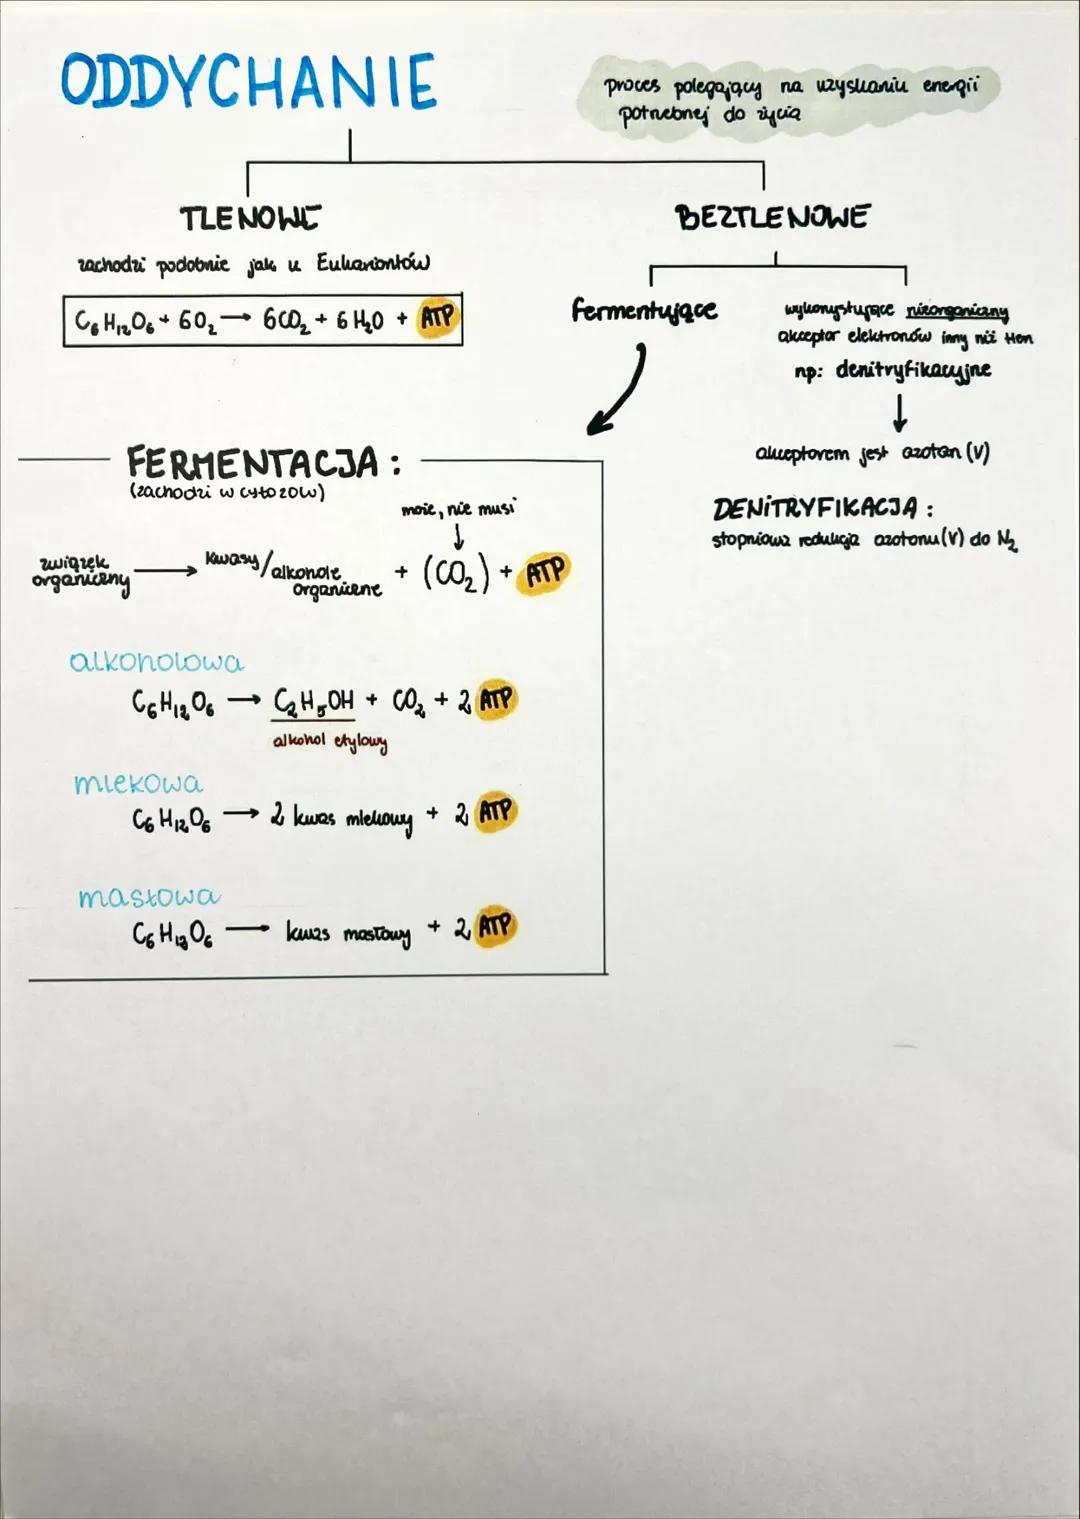 ODDYCHANIE
proces polegający na uzyskaniu energii
potrzebnej do życia
TLENOWE
zachodzi podobnie jak u Eukariontów
C₆H₁₂O₆ + 6O₂ → 6CO₂ + 6H₂O + ATP
BEZTLENOWE
fermentujące
wykorzystujące nieorganiczny
akceptor elektronów inny niż tlen
np: denitryfikacyjne
↓
akceptorem jest azotan (V)
DENITRYFIKACJA :
stopniowa redukcja azotanu(V) do N₂
FERMENTACJA :
(zachodzi w cytozolu)
może, nie musi
↓
związek
organiczny → kwasy/alkohole
organiczne + (CO₂) + ATP
alkoholowa
C₆H₁₂O₆ → C₂H₅OH + CO₂ + 2 ATP
alkohol etylowy
mlekowa
C₆H₁₂O₆ → 2 kwas mlekowy + 2 ATP
masłowa
C₆H₁₂O₆ → kwas masłowy + 2 ATP